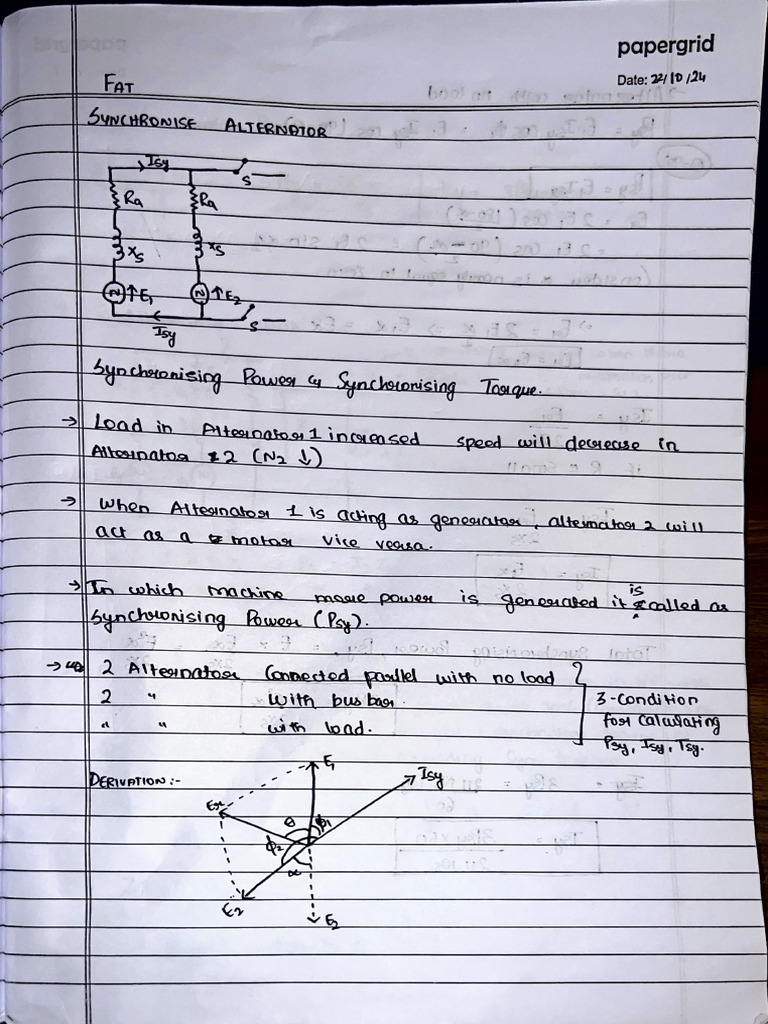 papergrid
Date: 22/10/24
FAT
SYNCHRONISE ALTERNATOR
Isy
S
Ra
Ra
Xs
Xs
N
↑E1
N
↑E2
S
Isy
Synchronising Power & Synchronising Torque.
→ Load in Alternator 1 increased speed will decrease in
Alternator 2 (N2 ↓)
→ When Alternator 1 is acting as generator, alternator 2 will
act as a motor vice versa.
→ In which machine more power is generated it is called as
Synchronising Power (Psy).
→ 2 Alternator Connected parallel with no load
2 " with bus bar.
" " with load.
3-Condition
for Calculating
Psy, Isy, Tsy.
DERIVATION:-
E1
Isy
Er
θ
ϕ1
ϕ2
α
E2
E2